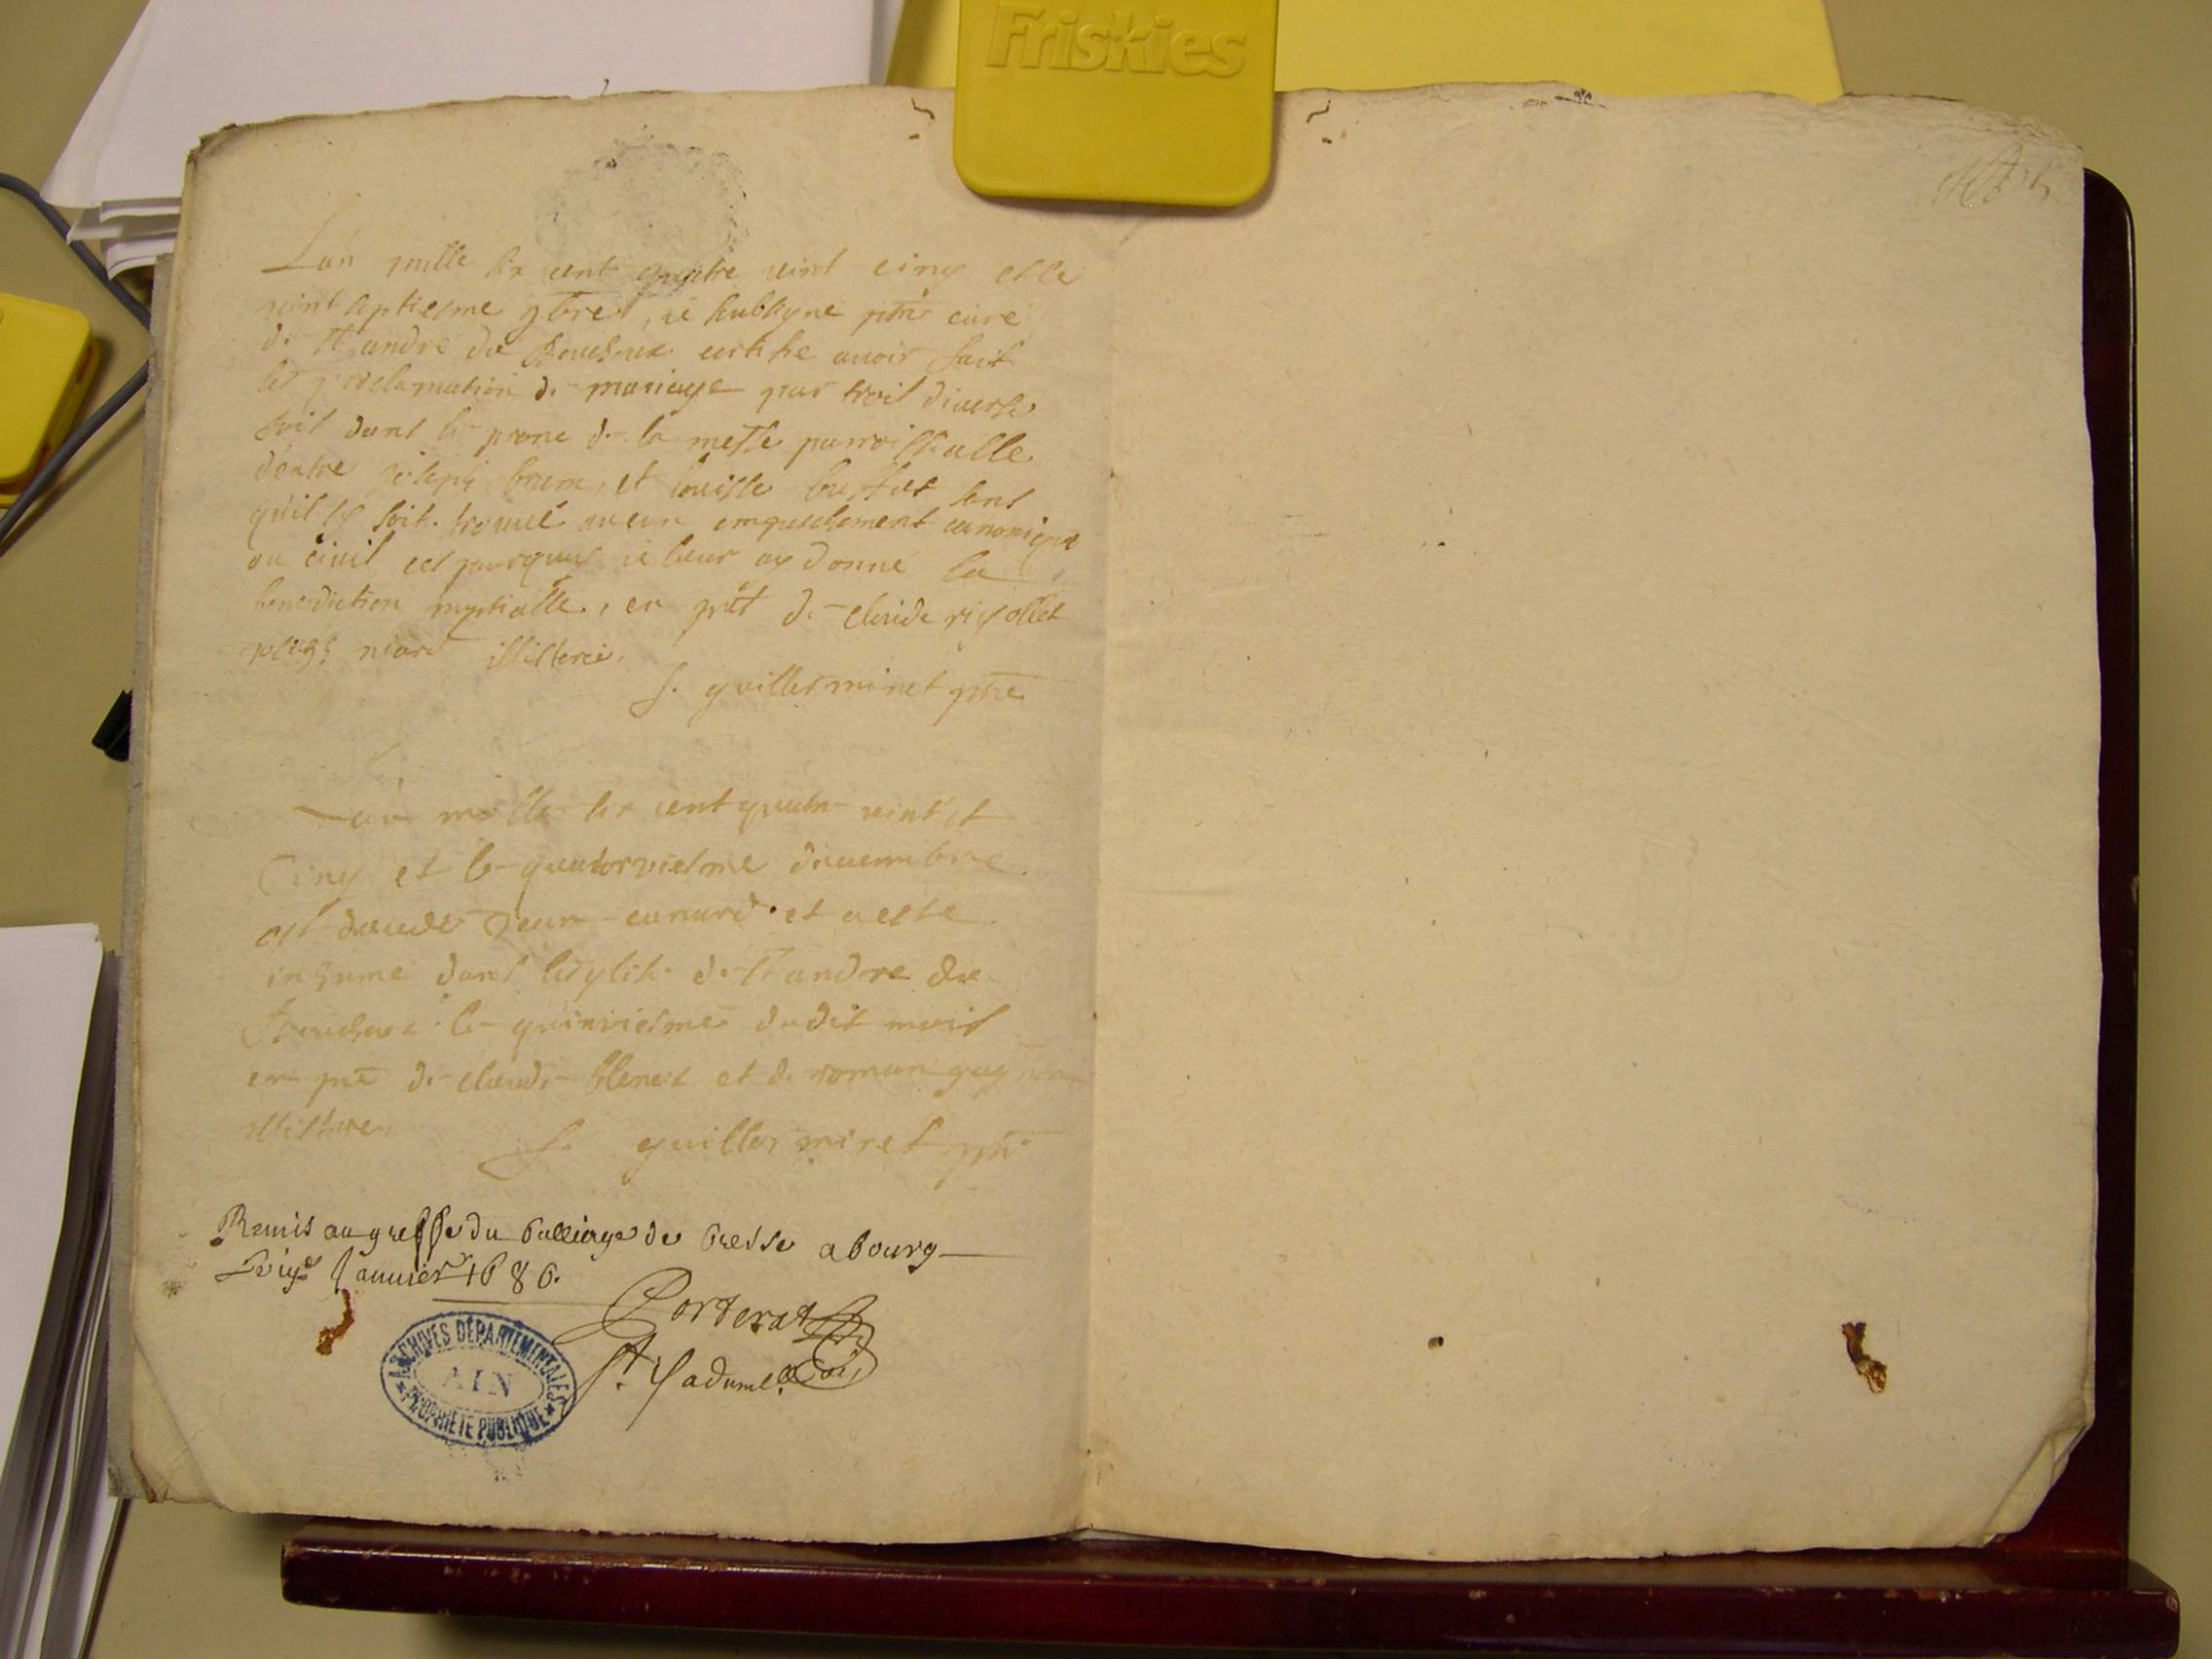 Friskies
L'an mille six cent quatre vint cinq et le
vint septiesme 9bre, ie soubsigne ptre curé
de St andre du Bouchoux certifie avoir fait
les proclamation de mariage par trois diverse
fois dans le prone de la messe parroissialle
d'entre joseph brun, et louisse buffet sans
qu'il sy soit trouvé aucun empeschement canonique
ou civil cest pourquoy ie leur ay donné la
benediction nuptialle, en pnt de claude rigollet
illitere
f. guillerminet ptre
L'an mille six cent quatre vint et
Cinq et le quatorziesme decembre
est decede Jean canard et a este
inhume dans leglise de St andre du
Bouchoux le quinziesme dudit mois
en pnt de claude blenet et de roman
illitere
f. guillerminet ptre
Remis au greffe du balliage de bresse a bourg
Janvier 1686.
Porterat
ARCHIVES DÉPARTEMENTALES
AIN
PROPRIÉTÉ PUBLIQUE